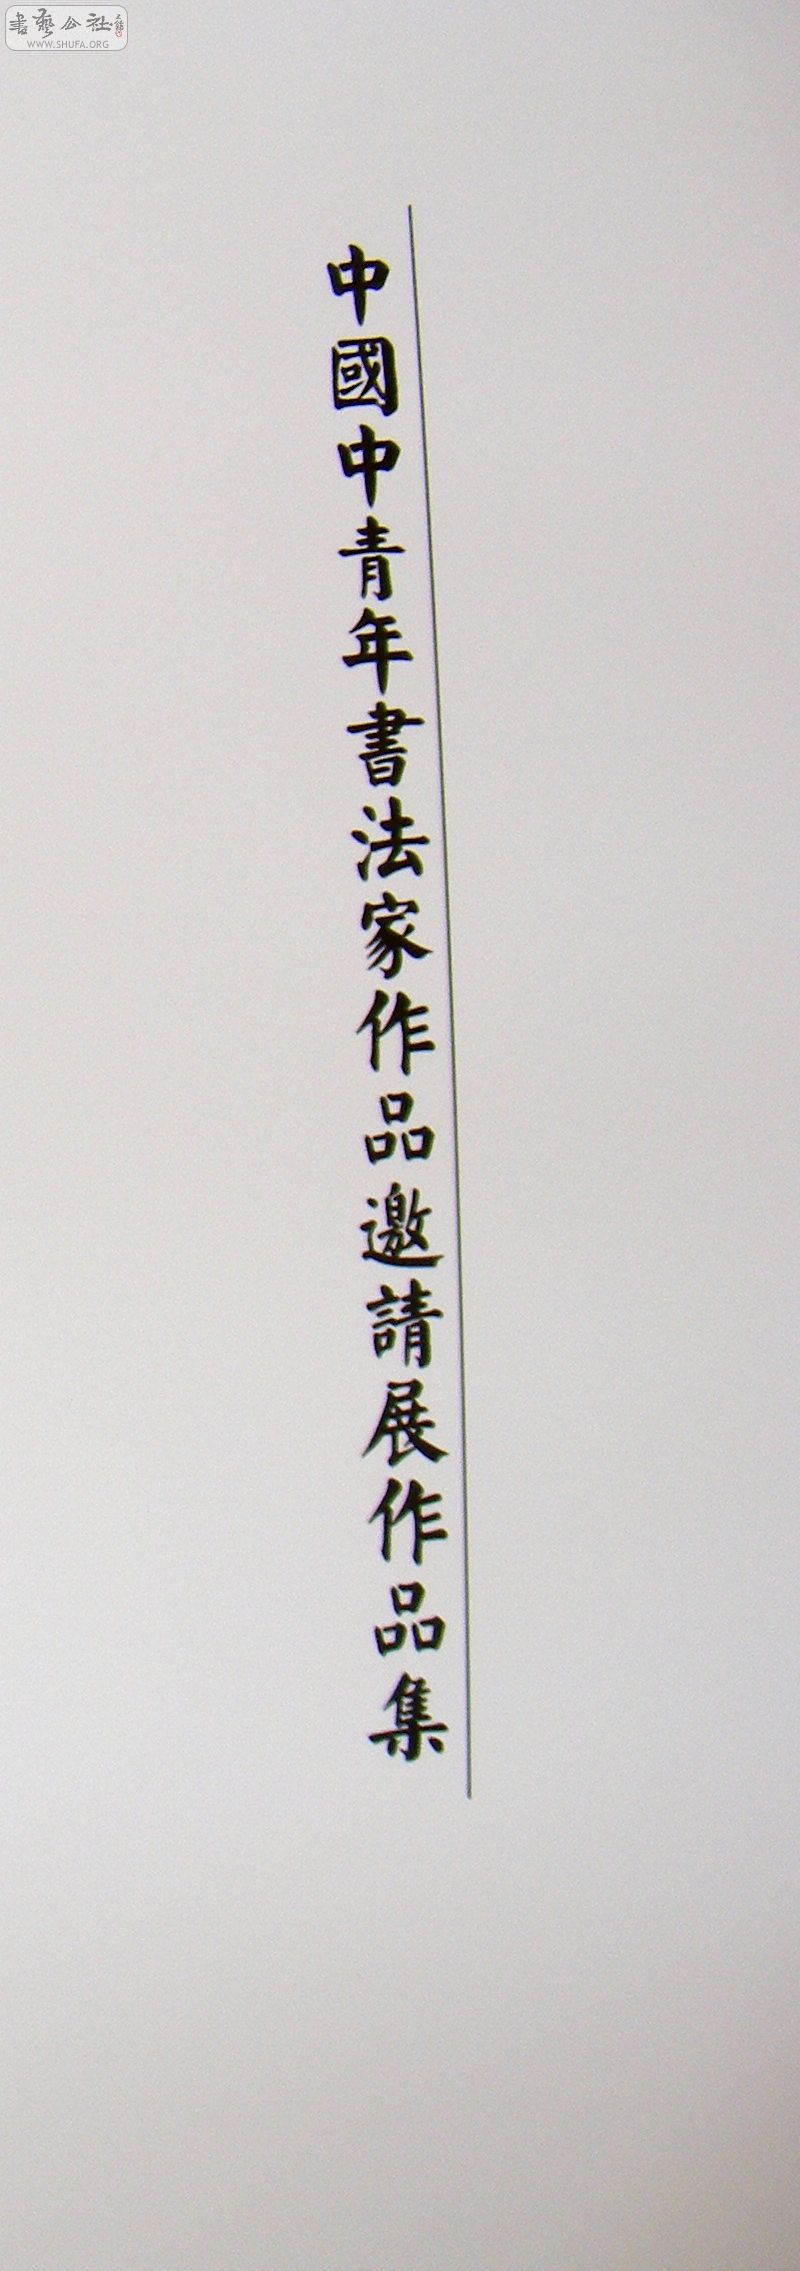 書藝公社
WWW.SHUFA.ORG
中國中青年書法家作品邀請展作品集